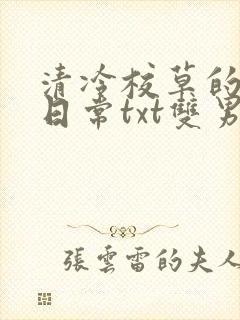 清冷校草的
日常txt雙男
張雲雷的夫人